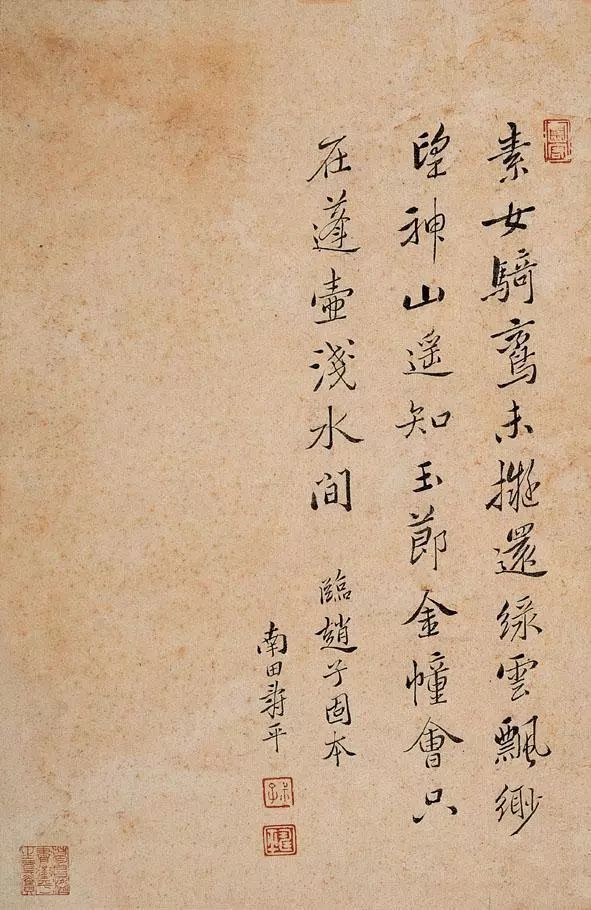 素女騎鸞未擬還綠雲飄緲
望神山遥知玉節金幢會只
在蓬壺淺水間
臨趙子固本
南田壽平